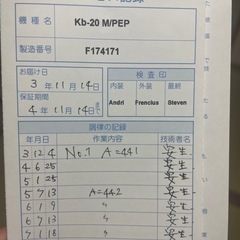 機種名 Kb-20 M/PEP
製造番号 F174171
お届け日 3年11月14日
保証期間 4年11月14日まで
検査印
内装 外装 最終
Andri Francius Steven
調律の記録
年月日 作業内容 技術者名
3 12 4 No.1 A=441 安生
4 6 25 安生
5 1 25 安生
5 7 13 A=442 安生
6 1 9 〃 安生
6 7 13 〃 安生
7 1 18 〃 安生